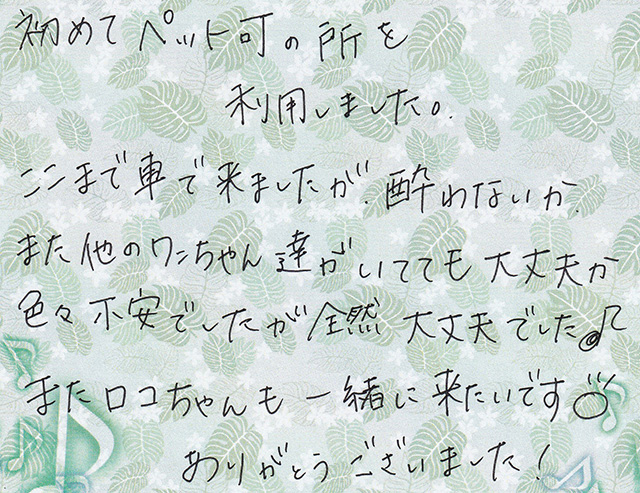 初めてペット可の所を
利用しました。
ここまで車で来ましたが、酔わないか、
また他のワンちゃん達がいてても大丈夫か
色々不安でしたが全然大丈夫でした♪
またロコちゃんも一緒に来たいです
ありがとうございました!